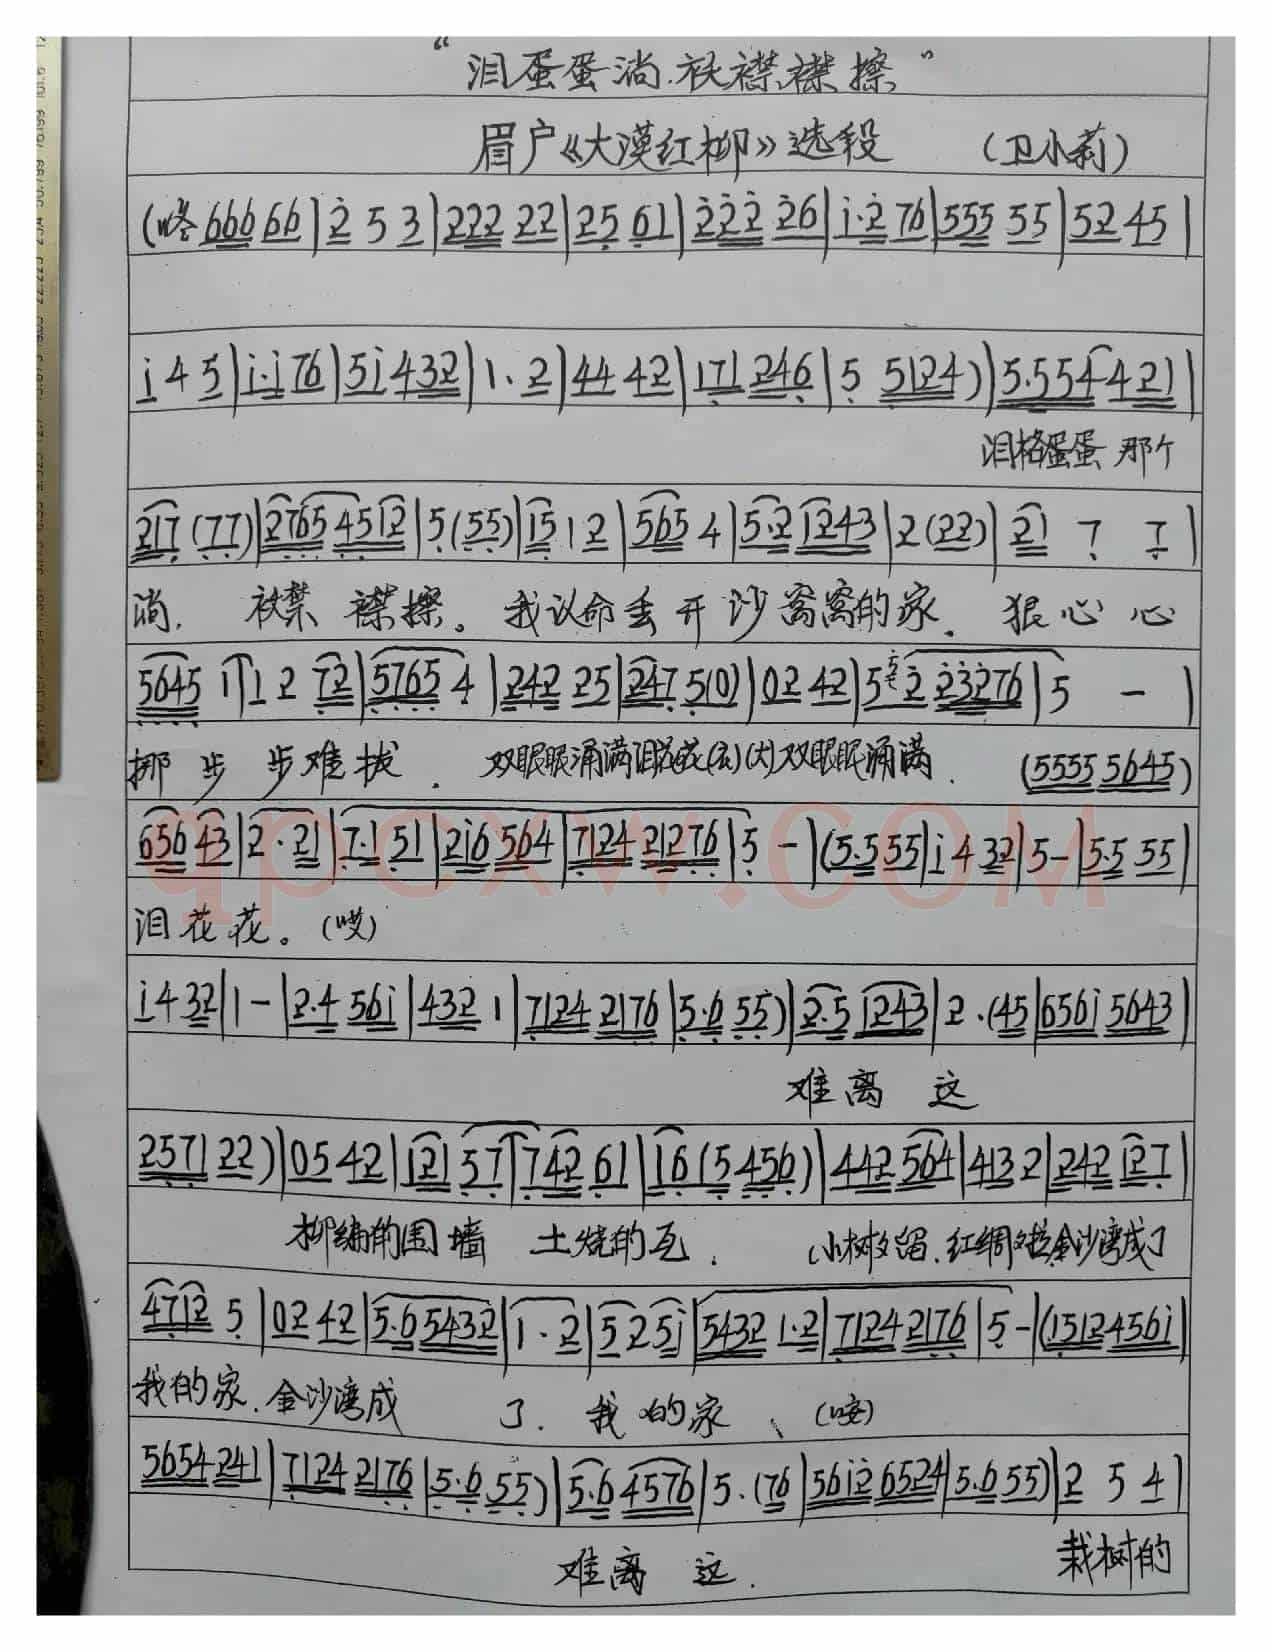 "泪蛋蛋淌.袄襟襟擦"
眉户《大漠红柳》选段 (卫小莉)
666 66 | 2 5 3 | 222 22 | 25 61 | 222 26 | i·2 76 | 555 55 | 52 45 |
i 4 5 | i·i 76 | 5i 432 | 1. 2 | 44 42 | 171 246 | 5 5124) | 5.554 421 |
泪格蛋蛋 那个
217 (77) | 2765 4512 | 5 (55) | 15 1 2 | 565 4 | 5·2 1243 | 2 (22) | 21 7 7 |
淌. 袄襟 襟擦。我认命丢开沙窝窝的家. 狠心心
5645 1 | 1 2 72 | 5765 4 | 242 25 | 247 5(0) | 02 42 | 5 2 23276 | 5 - |
挪步步难拔. 双眼眼涌满泪花花(玄)(大)双眼眼涌满. (5555 5645)
656 43 | 2·21 | 7·1 51 | 2i6 564 | 7124 2176 | 5 - | (5.5 55 | i 4 32 | 5- | 5.5 55 |
泪花花。(哎)
i 4 32 | 1 - | 2.4 56i | 432 1 | 7124 2176 | 5·6 55) | 2·5 1243 | 2·(45 | 656i 5643 |
难离这
2571 22) | 05 42 | 121 57 | 742 61 | 16 (5 456) | 442 564 | 413 2 | 242 127 |
柳编的围墙 土烧的瓦. 小树文留.红绸文拉金沙湾成了
4712 5 | 02 42 | 5·6 5432 | 1·2 | 5 2 5i | 5432 1·2 | 7124 2176 | 5 - | (1512 456i |
我的家.金沙湾成 了.我的家、(哎)
5654 241 | 7124 2176 | 5·6 55) | 5·6 4576 | 5·(76 | 56i2 6524 | 5·6 55) | 2 5 4 |
难离这. 栽树的
qpcxw.COM